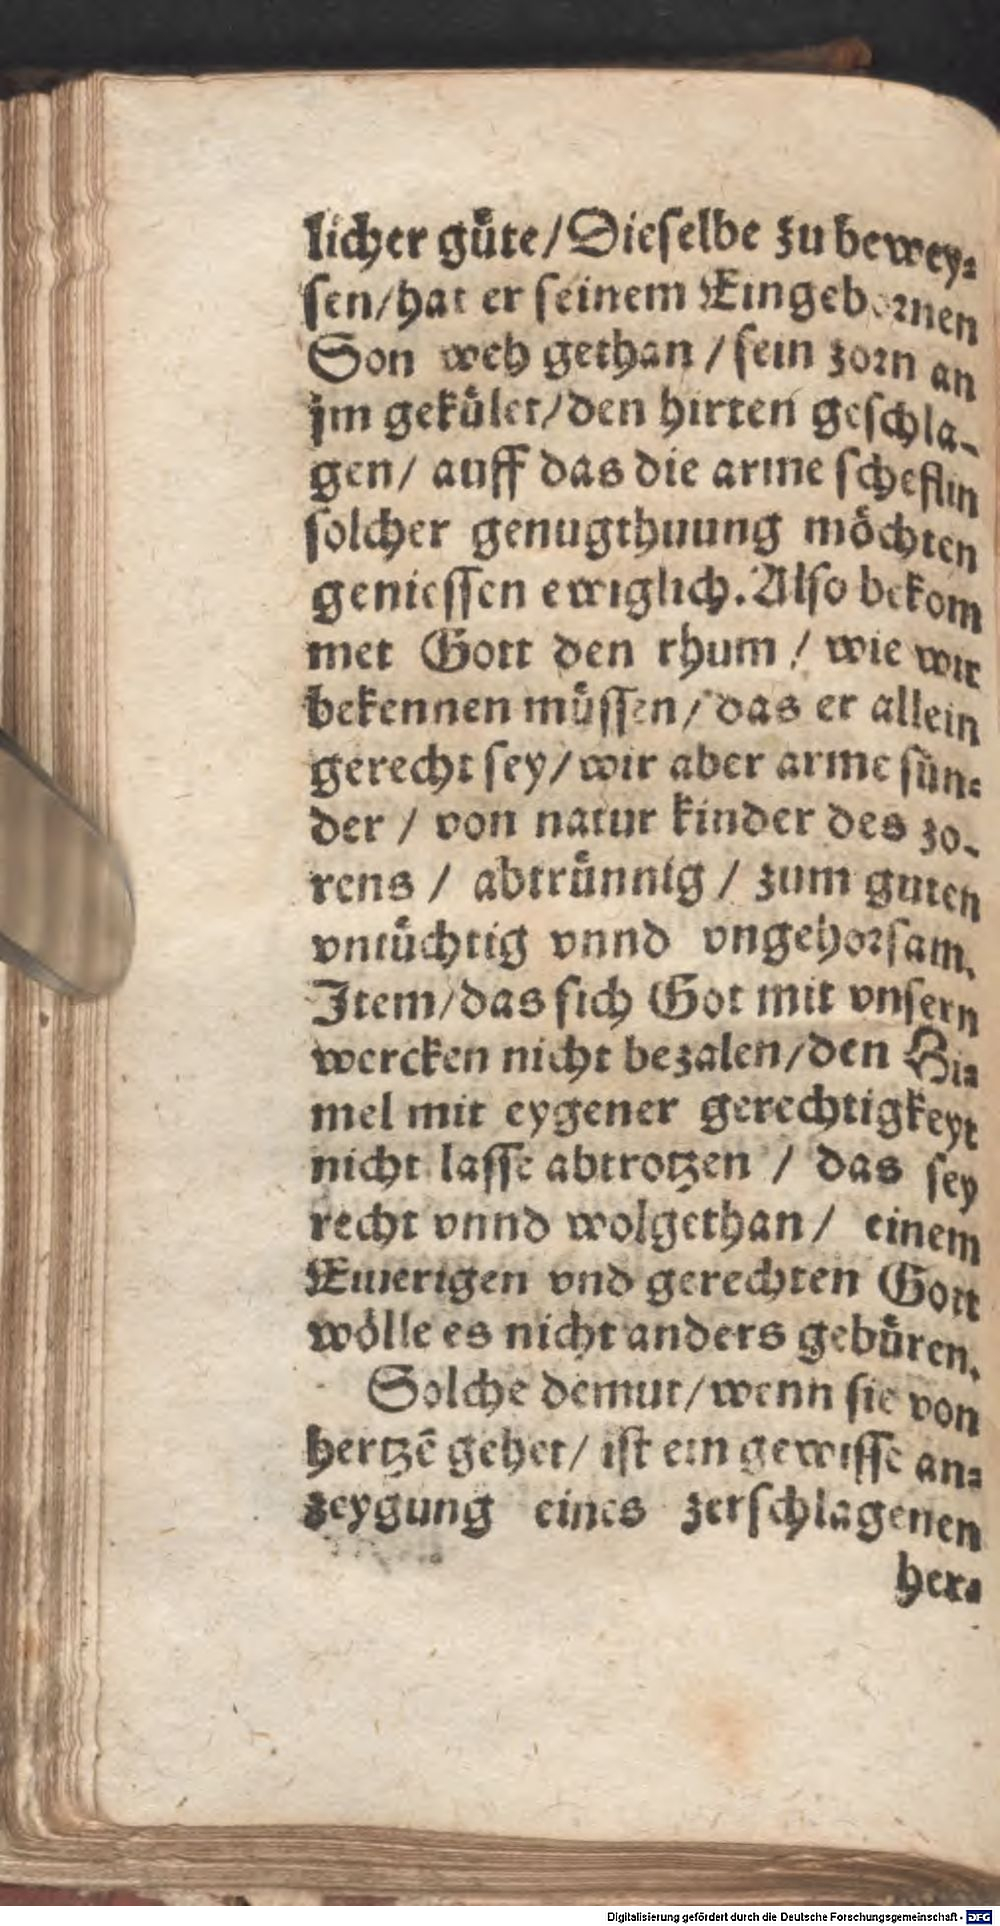 licher guͤte/Dieselbe zu bewey⸗
sen/hat er seinem Eingebornen
Son weh gethan / sein zorn an
jm gekuͤlet/den hirten geschla-
gen/ auff das die arme scheflin
solcher genugthuung moͤchten
geniessen ewiglich. Also bekom
met Gott den rhum / wie wir
bekennen muͤssen/ das er allein
gerecht sey/wir aber arme sün⸗
der / von natur kinder des zo-
rens / abtruͤnnig / zum guten
vntuͤchtig vnnd vngehorsam.
Item/das sich Got mit vnsern
wercken nicht bezalen/den Hi⸗
mel mit eygener gerechtigkeyt
nicht lasse abtrotzen / das sey
recht vnnd wolgethan/ einem
Eiuerigen vnd gerechten Gott
woͤlle es nicht anders gebuͤren.
Solche demut/wenn sie von
hertzē gehet/ ist ein gewisse an⸗
zeygung eines zerschlagenen
her⸗
Digitalisierung gefördert durch die Deutsche Forschungsgemeinschaft - DFG